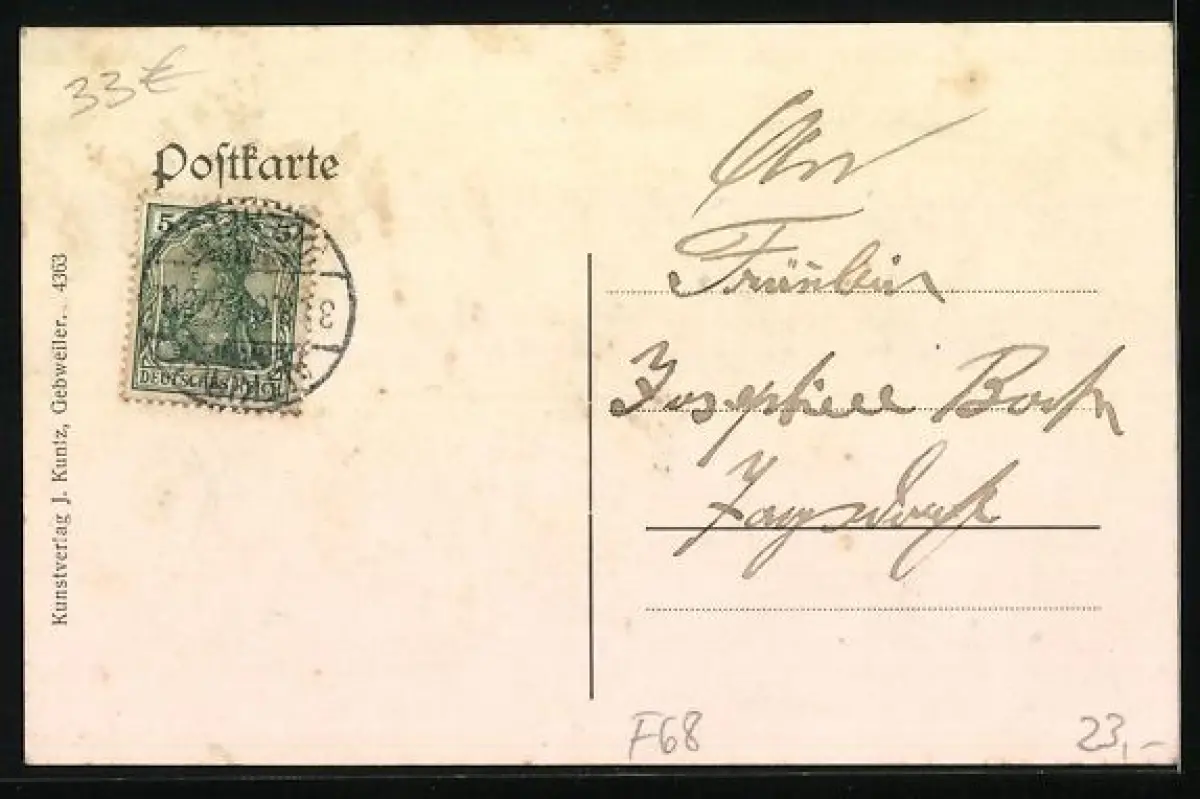 33€
Postkarte
5 5
3
DEUTSCHES REICH
Kunstverlag J. Kuntz, Gebweiler. 4363
An
Fräulein
Josephine
F68
23,-